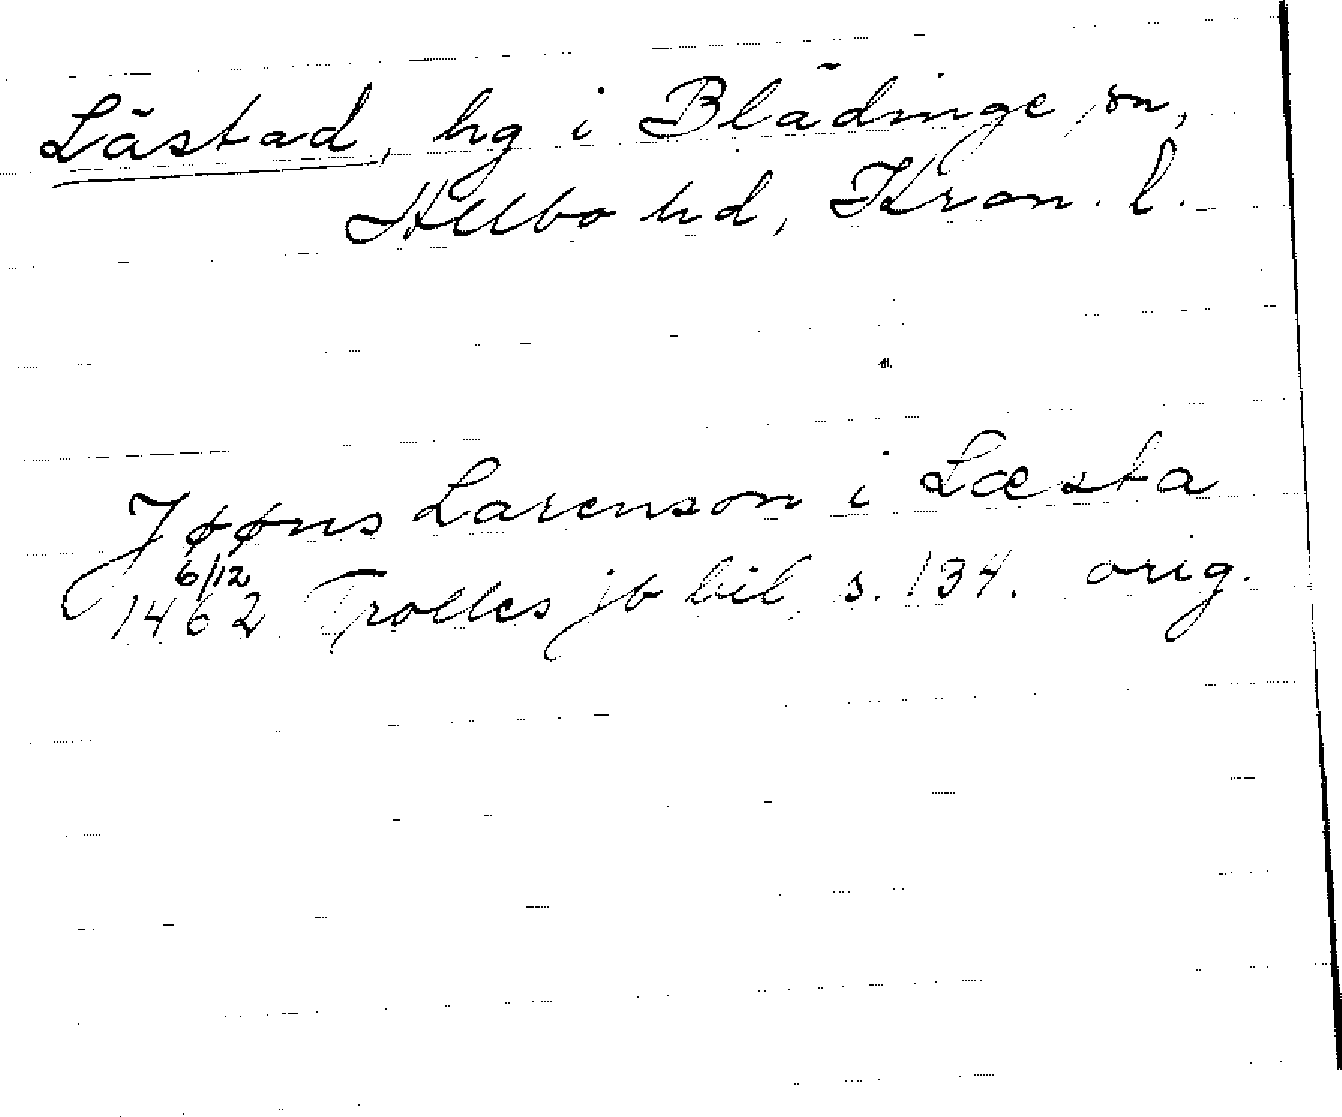 Lästad, hg i Blädinge sn,
Allbo hd, Kron. l.
Jøøns Larenson i Læsta
1462 6/12 Trolles jb bil s. 134. orig.